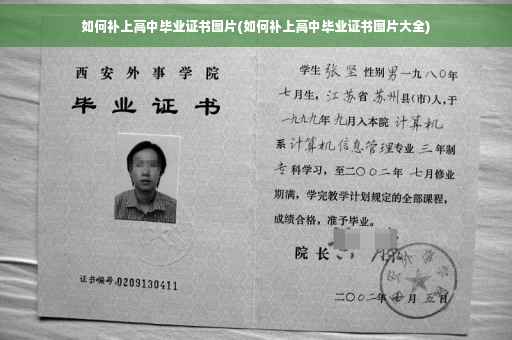 如何补上高中毕业证书图片(如何补上高中毕业证书图片大全)
西安外事学院
毕业证书
证书编号:0209130411
学生 张坚 性别男一九八〇年
七月生,江苏省苏州县(市)人,于
一九九九年九月入本院 计算机
系计算机信息管理专业 三 年制
专科学习,至二〇〇二年 七月修业
期满,学完教学计划规定的全部课程,
成绩合格,准予毕业。
院长
二〇〇二年 月 五日